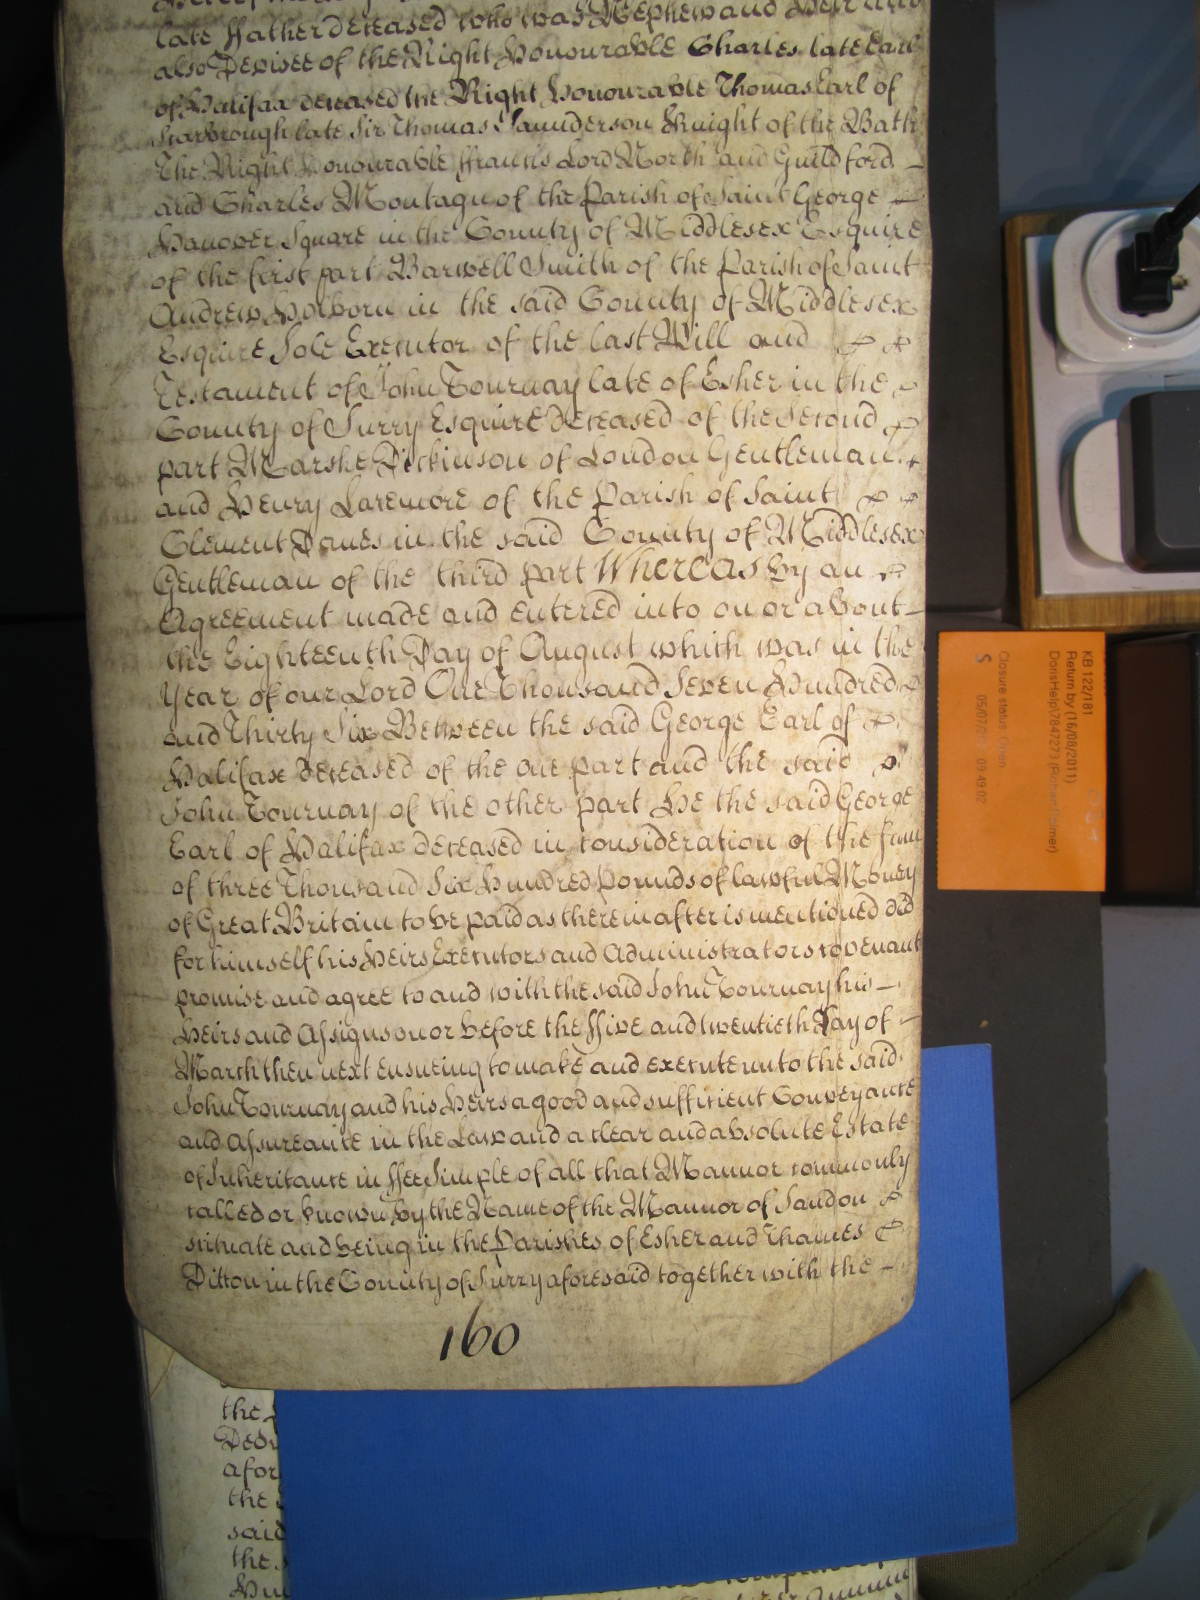 late ffather deceased who was Nephew and Heir and
also Devisee of the Right Honourable Charles late Earl
of Halifax deceased the Right Honourable Thomas Earl of
Scarbrough late Sir Thomas Saunderson Knight of the Bath
The Right Honourable ffrancis Lord North and Guildford
and Charles Montagu of the Parish of Saint George
Hanover Square in the County of Middlesex Esquire
of the first part Barwell Smith of the Parish of Saint
Andrew Holborn in the said County of Middlesex
Esquire Sole Executor of the last Will and
Testament of John Tournay late of Esher in the
County of Surry Esquire deceased of the Second
part Marshe Dickinson of London Gentleman
and Henry Laremore of the Parish of Saint
Clement Danes in the said County of Middlesex
Gentleman of the third part Whereas by an
Agreement made and entered into on or about
the Eighteenth Day of August which was in the
Year of our Lord One Thousand Seven Hundred
and Thirty Six Between the said George Earl of
Halifax deceased of the one part and the said
John Tournay of the other part He the said George
Earl of Halifax deceased in consideration of the sum
of three Thousand Six Hundred Pounds of lawful Money
of Great Britain to be paid as therein after is mentioned did
for himself his Heirs Executors and Administrators covenant
promise and agree to and with the said John Tournay his
Heirs and Assigns on or before the ffive and twentieth Day of
March then next ensueing to make and execute unto the said
John Tournay and his Heirs a good and sufficient Conveyance
and Assureance in the Law and a clear and absolute Estate
of Inheritance in ffee Simple of all that Mannor commonly
called or known by the Name of the Mannor of Sandon
scituate and being in the Parishes of Esher and Thames
Ditton in the County of Surry aforesaid together with the
160
the
afor
the
said
the
KB 122/181
Return by (16/08/2011)
DorisHelp\7847273 (
Closure status Open
S 05/07/2 09:49:02